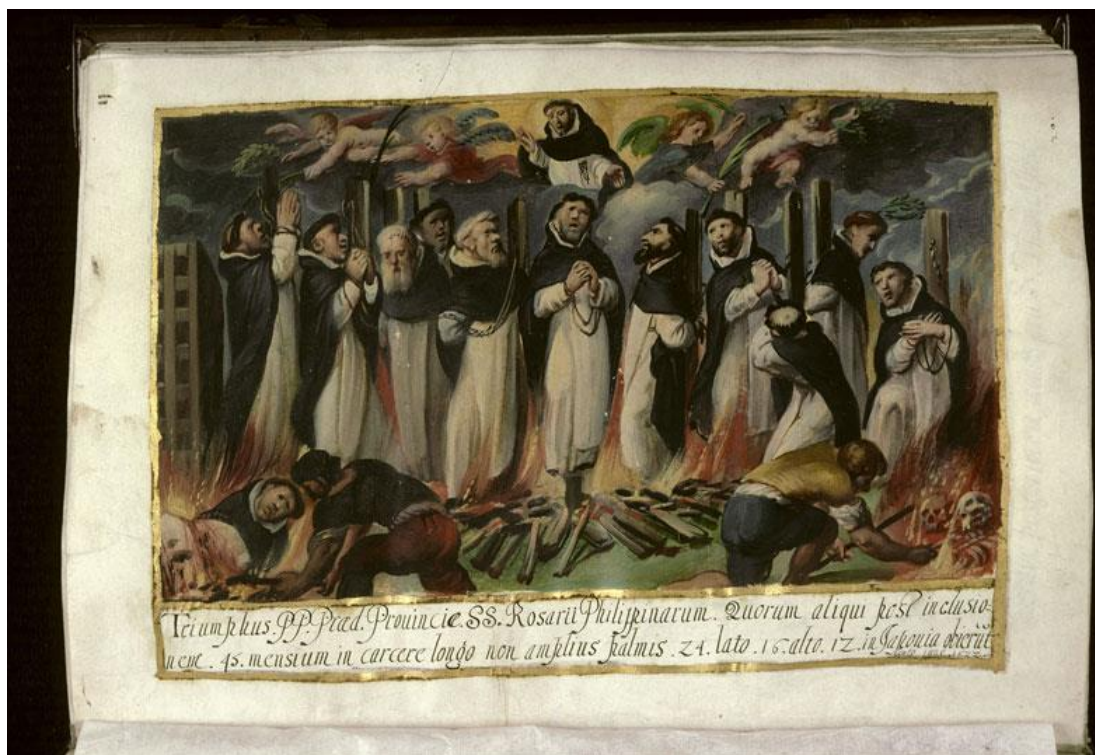 Triumphus. PP. Præd. Prouinciæ SS. Rosarii Philippinarum. Quorum aliqui post inclusio-
nem. 45. mensium in carcere longo non amplius palmis. 24. lato. 16. alto. 12. in Japonia obierūt